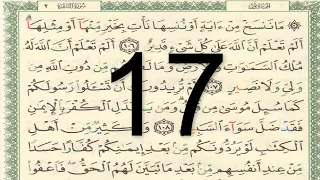 مَا نَنسَخْ مِنْ ءَايَةٍ أَوْ نُنسِهَا نَأْتِ بِخَيْرٍ مِّنْهَآ أَوْ مِثْلِهَآ
أَلَمْ تَعْلَمْ أَنَّ ٱللَّهَ عَلَىٰ كُلِّ شَىْءٍ قَدِيرٌ ١٠٦ أَلَمْ تَعْلَمْ أَنَّ ٱللَّهَ لَهُۥ
مُلْكُ ٱلسَّمَـٰوَٰتِ مِّن دُونِ ٱللَّهِ مِن
17
وَلِىٍّ وَلَا نَصِيرٍ ١٠٧ تُرِيدُونَ أَن تَسْـَٔلُوا۟ رَسُولَكُمْ
كَمَا سُئِلَ ٱلْكُفْرَ بِٱلْإِيمَـٰنِ
فَقَدْ ضَلَّ سَوَآءَ ١٠٨ كَثِيرٌ مِّنْ أَهْلِ
ٱلْكِتَـٰبِ لَوْ يَرُدُّونَكُم مِّنۢ بَعْدِ إِيمَـٰنِكُمْ كُفَّارًا حَسَدًا
مِّنْ عِندِ أَنفُسِهِم مِّنۢ بَعْدِ مَا تَبَيَّنَ لَهُمُ ٱلْحَقُّ فَٱعْفُوا۟